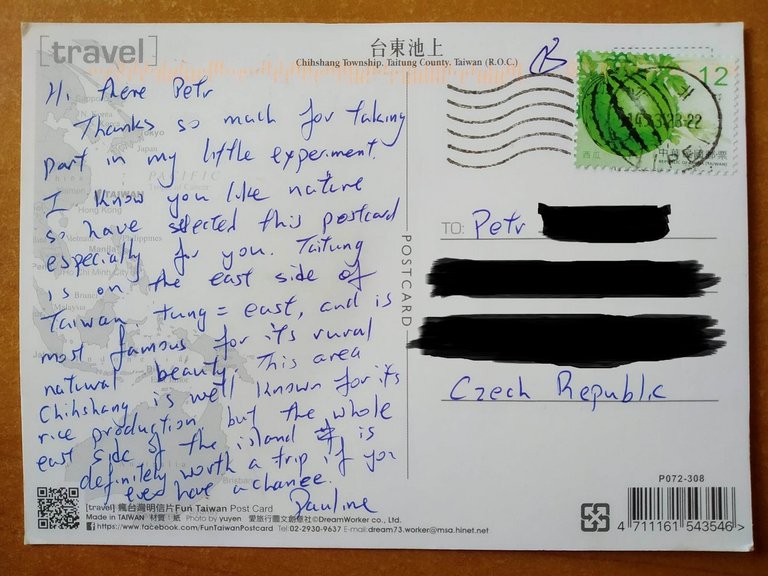 [travel]
台東池上
Chihshang Township, Taitung County, Taiwan (R.O.C.)
12
西瓜
中華民國郵票
REPUBLIC OF CHINA (TAIWAN)
Hi there Petr
Thanks so much for taking
part in my little experiment.
I know you like nature
so have selected this postcard
especially for you. Taitung
is on the east side of
Taiwan. tung = east, and is
most famous for its rural
natural beauty. This area
Chihshang is well known for its
rice production, but the whole
east side of the island is
definitely worth a trip if you
ever have a chance.
Pauline
POSTCARD
TO: Petr
Czech Republic
P072-308
4 711161 543546 >
[travel] 瘋台灣明信片Fun Taiwan Post Card
Made in TAIWAN 材質：紙 Photo by yuyen 愛旅行圖文創意©DreamWorker co., Ltd.
https://www.facebook.com/FunTaiwanPostcard Tel:02-2930-9637 E-mail:dream73.worker@msa.hinet.net